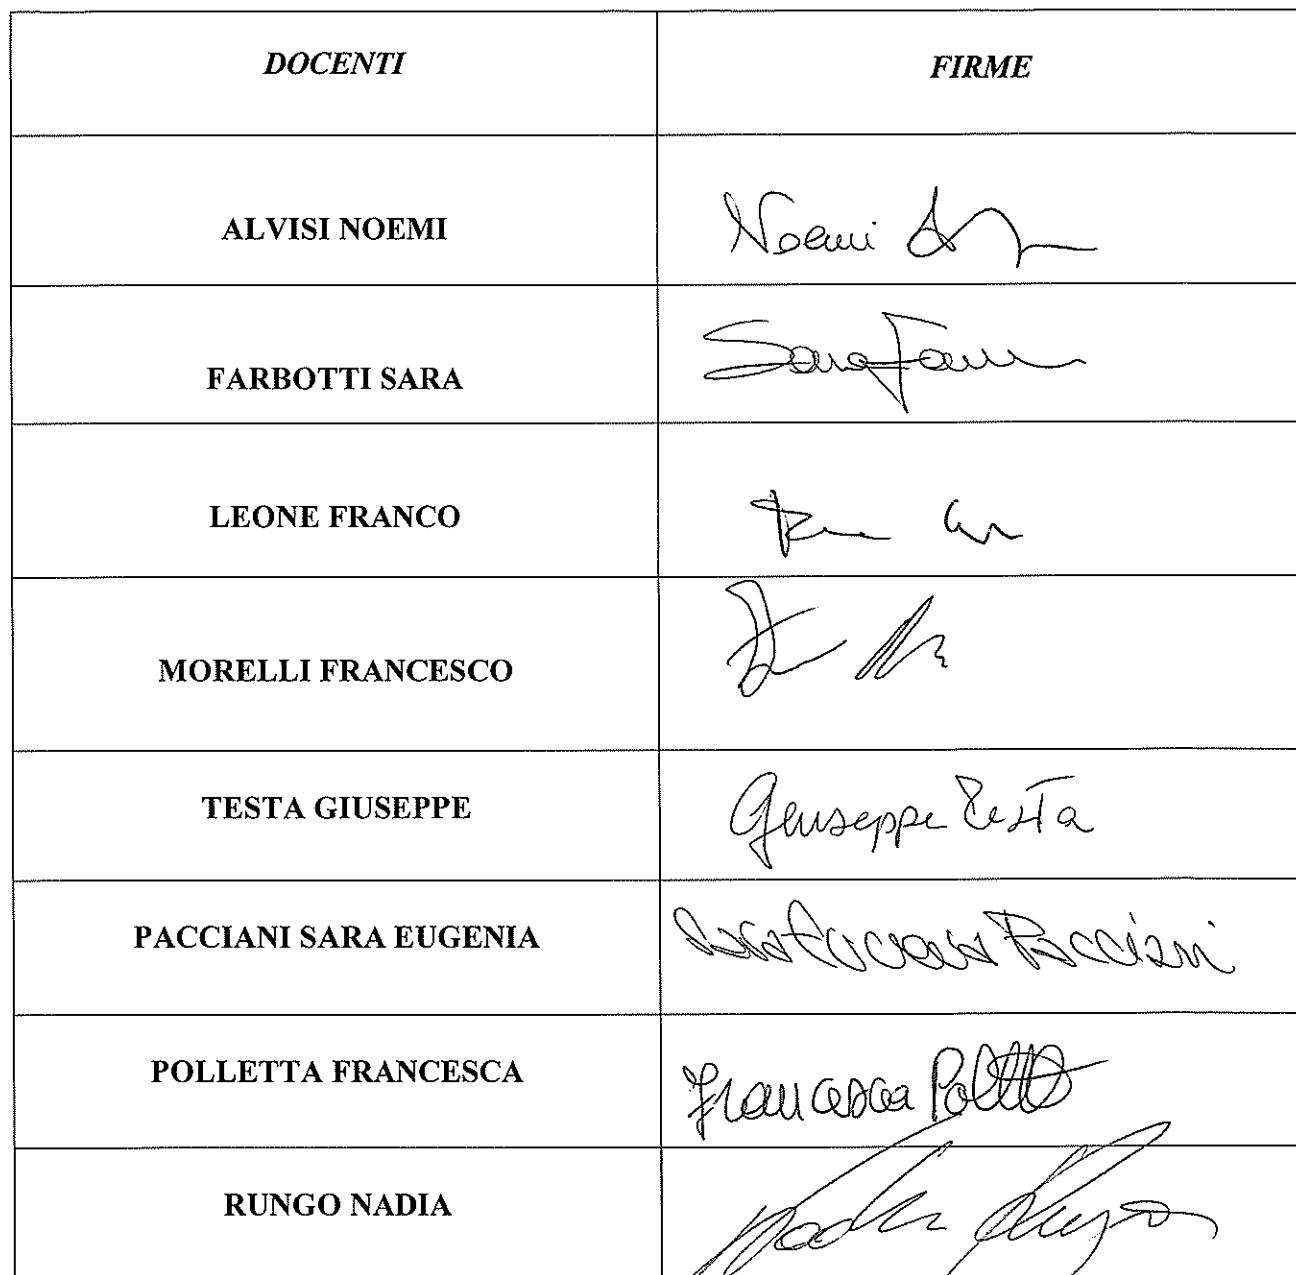 DOCENTI FIRME
ALVISI NOEMI Noemi
FARBOTTI SARA Sara
LEONE FRANCO
MORELLI FRANCESCO
TESTA GIUSEPPE Giuseppe Testa
PACCIANI SARA EUGENIA Pacciani
POLLETTA FRANCESCA Francesca Polletta
RUNGO NADIA Nadia Rungo